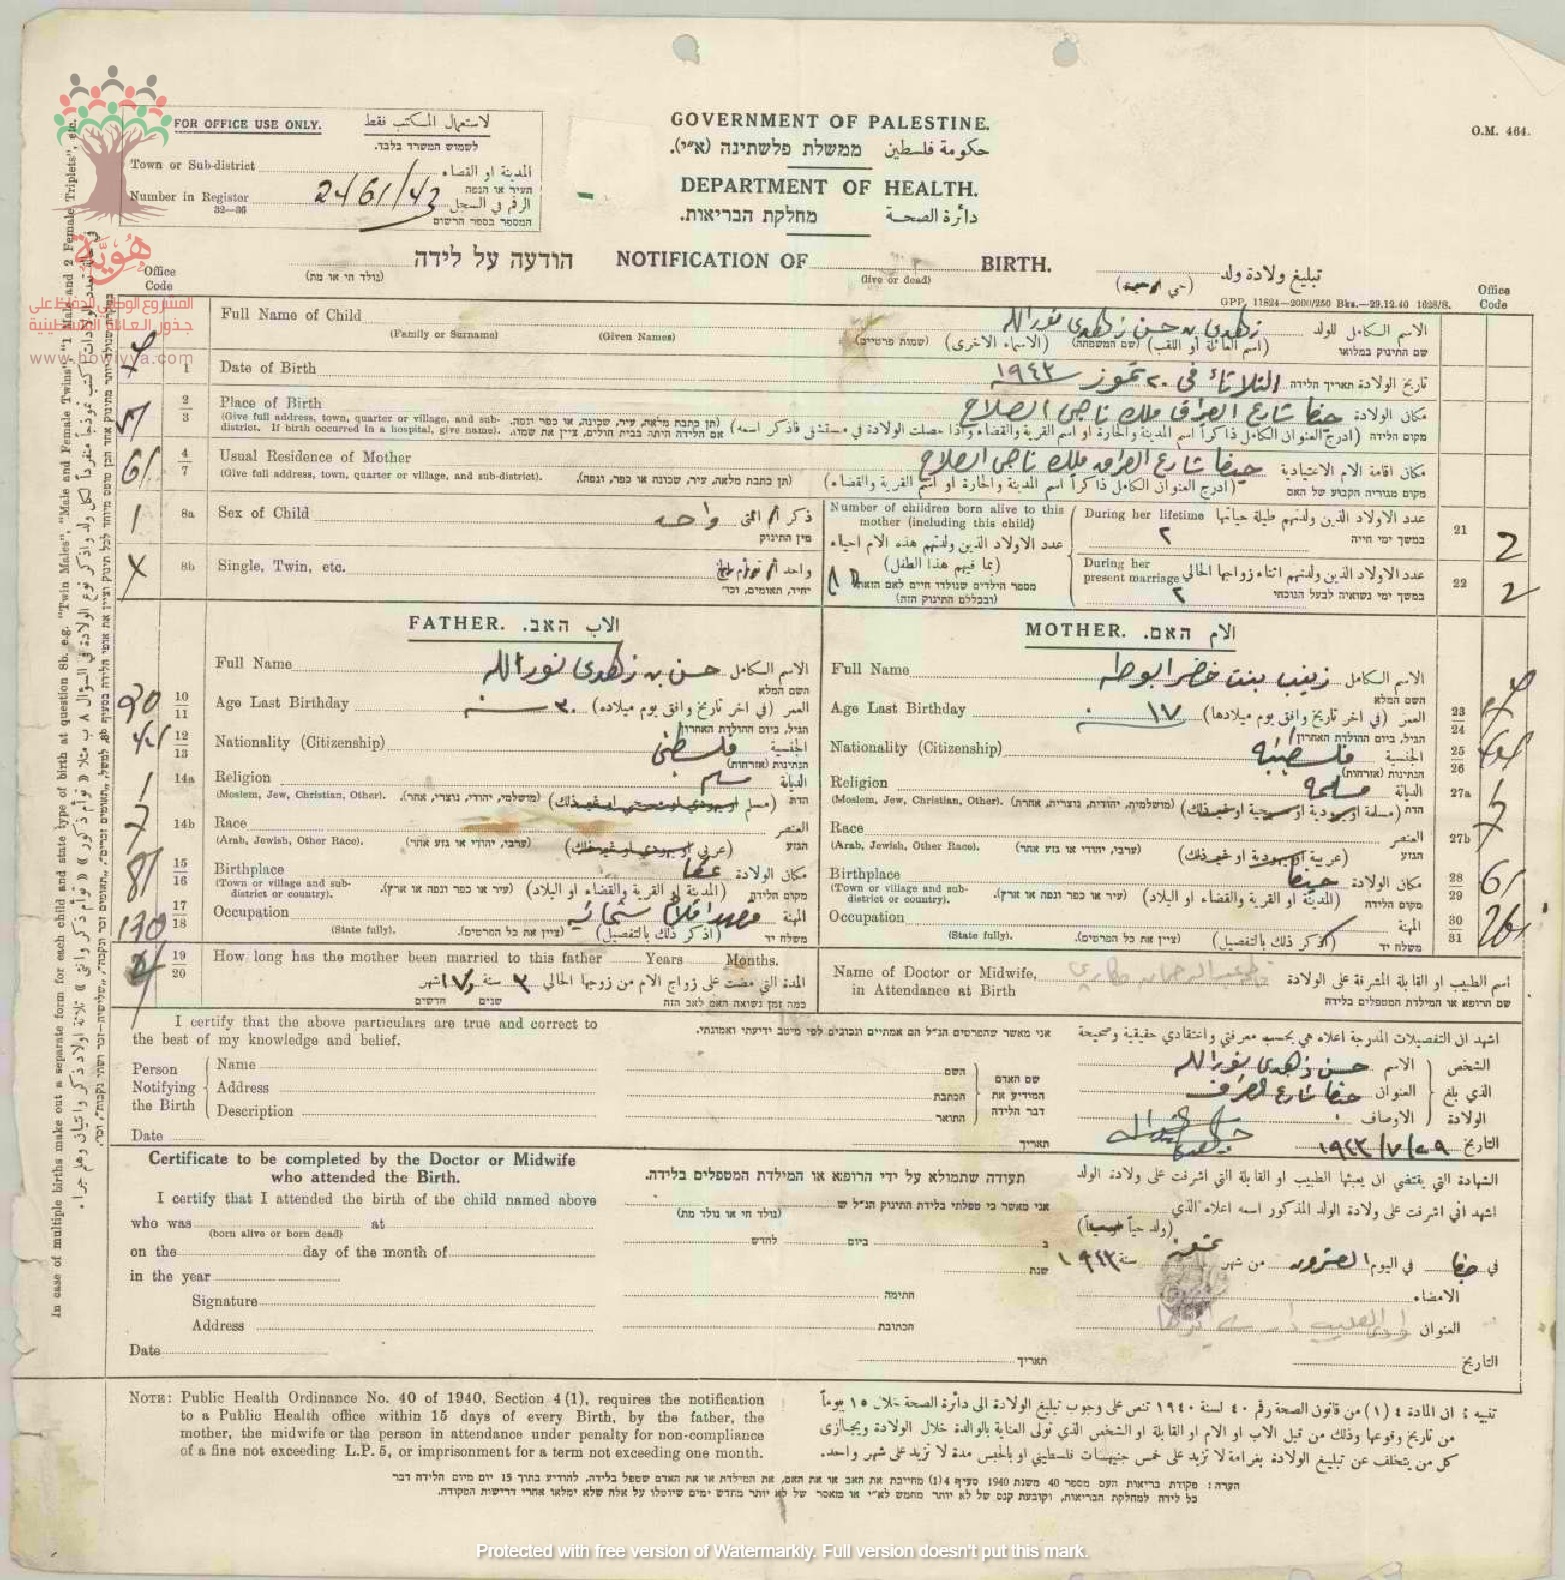 O.M. 464.
FOR OFFICE USE ONLY. لاستعمال المكتب فقط
לשמוש המשרד בלבד.
Town or Sub-district المدينة او القضاء
העיר או הנפה
Number in Register 2461/43 الرقم في السجل
32—36 המספר בספר הרשום
GOVERNMENT OF PALESTINE.
ממשלת פלשתינה (א"י). حكومة فلسطين
DEPARTMENT OF HEALTH.
מחלקת הבריאות. دائرة الصحة
הודעה על לידה NOTIFICATION OF BIRTH. تبليغ ولادة ولد
(נולד חי או מת) (Give or dead)
GPP. 11824—2000/250 Bks.—29.12.40 1028/8.
هُويّة
المشروع الوطني للحفاظ على
جذور العائلة الفلسطينية
www.howiyya.com
Office Code Office Code
Full Name of Child زهدي بن حسن زهدي نورالله الاسم الكامل للولد
(Family or Surname) (Given Names) (שמות פרטיים) (الاسماء الاخرى) (שם המשפחה) (اسم العائلة او اللقب) שם התינוק במלואו
1 Date of Birth الثلاثاء في ٢٠ تموز ١٩٤٣ تاريخ الولادة תאריך הלידה
2/3 Place of Birth حيفا شارع العراق ملك ناجي الصلاح مكان الولادة
(Give full address, town, quarter or village, and sub-district. If birth occurred in a hospital, give name). (תן כתבת מלאה, עיר, שכונה, או כפר ונפה. אם הלידה היתה בבית חולים, ציין את שמו). (ادرج العنوان الكامل ذاكراً اسم المدينة والحارة او اسم القرية والقضاء واذا حصلت الولادة في مستشفى فاذكر اسمه) מקום הלידה
61 4/7 Usual Residence of Mother حيفا شارع العراق ملك ناجي الصلاح مكان اقامة الام الاعتيادية
(Give full address, town, quarter or village, and sub-district). (תן כתבת מלאה, עיר, שכונה או כפר, ונפה). (ادرج العنوان الكامل ذاكراً اسم المدينة والحارة او اسم القرية والقضاء) מקום מגוריה הקבוע של האם
1 8a Sex of Child ذكر او انثى
מין התינוק
8b Single, Twin, etc. واحد او توأم الخ
יחיד, תאומים, וכד'
Number of children born alive to this mother (including this child) عدد الاولاد الذين ولدتهم هذه الام احياء (بما فيهم هذا الطفل)
מספר הילדים שנולדו חיים לאם הזאת (ובכללם התינוק הזה)
During her lifetime عدد الاولاد الذين ولدتهم طيلة حياتها 21 2
٢ במשך ימי חייה
During her present marriage عدد الاولاد الذين ولدتهم اثناء زواجها الحالي 22 2
٢ במשך ימי נשואיה לבעל הנוכחי
FATHER. האב. الاب
Full Name حسن بن زهدي نورالله الاسم الكامل
השם המלא
10/11 Age Last Birthday ٣٠ سنة العمر (في اخر تاريخ وافق يوم ميلاده)
הגיל, ביום ההולדת האחרון
12/13 Nationality (Citizenship) فلسطيني الجنسية
הנתינות (אזרחות)
1 14a Religion مسلم الديانة
(Moslem, Jew, Christian, Other). (מושלמי, יהודי, נוצרי, אחר). (مسلم او يهودي او مسيحي او غير ذلك) הדת
14b Race العنصر
(Arab, Jewish, Other Race). (ערבי, יהודי או גזע אחר) (عربي او يهودي او غير ذلك) הגזע
81 15/16 Birthplace عكا مكان الولادة
(Town or village and sub-district or country). (עיר או כפר ונפה או ארץ). (المدينة او القرية والقضاء او البلاد) מקום הלידה
130 17/18 Occupation المهنة
(State fully). (ציין את כל הפרטים). (اذكر ذلك بالتفصيل) משלח יד
19/20 How long has the mother been married to this father Years Months.
المدة التي مضت على زواج الام من زوجها الحالي ٣ سنة و ١٧ شهر
כמה זמן נשואה האם לאב הזה שנים חדשים
MOTHER. האם. الام
Full Name زينب بنت خضر ابوطه الاسم الكامل
השם המלא
Age Last Birthday ١٧ سنة العمر (في اخر تاريخ وافق يوم ميلادها) 23/24
הגיל, ביום ההולדת האחרון
Nationality (Citizenship) فلسطينية الجنسية 25/26
הנתינות (אזרחות)
Religion مسلمة الديانة 27a 1
(Moslem, Jew, Christian, Other). (מושלמיה, יהודיה, נוצריה, אחרת) (مسلمة او يهودية او مسيحية او غير ذلك) הדת
Race العنصر 27b
(Arab, Jewish, Other Race). (ערביה, יהודיה או גזע אחר) (عربية او يهودية او غير ذلك) הגזע
Birthplace حيفا مكان الولادة 28/29 61
(Town or village and sub-district or country). (עיר או כפר ונפה או ארץ). (المدينة او القرية والقضاء او البلاد) מקום הלידה
Occupation المهنة 30/31
(State fully). (ציין את כל הפרטים). (اذكر ذلك بالتفصيل) משלח יד
Name of Doctor or Midwife, in Attendance at Birth اسم الطبيب او القابلة المشرفة على الولادة
שם הרופא או המילדת המטפלים בלידה
I certify that the above particulars are true and correct to the best of my knowledge and belief.
אני מאשר שהפרטים הנ"ל הם אמתיים ונכונים לפי מיטב ידיעתי ואמונתי.
اشهد ان التفصيلات المدرجة اعلاه هي بحسب معرفتي واعتقادي حقيقية وصحيحة
Person Notifying the Birth Name השם שם האדם המודיע את דבר הלידה حسن زهدي نورالله الاسم الشخص الذي بلغ الولادة
Address הכתבת حيفا شارع العراق العنوان
Description התואר الاوصاف
Date תאריך ٢٩/٧/١٩٤٣ التاريخ
Certificate to be completed by the Doctor or Midwife who attended the Birth.
תעודה שתמולא על ידי הרופא או המילדת המטפלים בלידה.
الشهادة التي يقتضي ان يعبئها الطبيب او القابلة التي اشرفت على ولادة الولد
I certify that I attended the birth of the child named above
אני מאשר כי טפלתי בלידת התינוק הנ"ל ש
اشهد اني اشرفت على ولادة الولد المذكور اسمه اعلاه الذي
who was at
(born alive or born dead) (נולד חי או נולד מת) (ولد حياً او ميتاً)
on the day of the month of ב ביום לחדש
في حيفا في اليوم العشرون من شهر تموز سنة ١٩٤٣
in the year שנת
Signature החתימה الامضاء
Address הכתובת العنوان
Date תאריך التاريخ
NOTE: Public Health Ordinance No. 40 of 1940, Section 4 (1), requires the notification
to a Public Health office within 15 days of every Birth, by the father, the
mother, the midwife or the person in attendance under penalty for non-compliance
of a fine not exceeding L.P. 5, or imprisonment for a term not exceeding one month.
تنبيه : ان المادة ٤ (١) من قانون الصحة رقم ٤٠ لسنة ١٩٤٠ تنص على وجوب تبليغ الولادة الى دائرة الصحة خلال ١٥ يوماً
من تاريخ وقوعها وذلك من قبل الاب او الام او القابلة او الشخص الذي تولى العناية بالوالدة خلال الولادة ويجازى
كل من يتخلف عن تبليغ الولادة بغرامة لا تزيد على خمس جنيهات فلسطيني او بالحبس مدة لا تزيد على شهر واحد.
הערה: פקודת בריאות העם מספר 40 משנת 1940 סעיף 4(1) מחייבת את האב או את האם, את המילדת או את האדם שטפל בלידה, להודיע בתוך 15 יום מיום הלידה דבר
כל לידה למחלקת הבריאות, וקובעת קנס של לא יותר מחמש לא"י או מאסר של לא יותר מחדש ימים שיוטלו על אלה שלא ימלאו אחרי דרישות הפקודה.
In case of multiple births make out a separate form for each child and state type of birth at question 8b. e.g. "Twin Males", "Male and Female Twins", "1 Male and 2 Female Triplets", etc.
Protected with free version of Watermarkly. Full version doesn't put this mark.